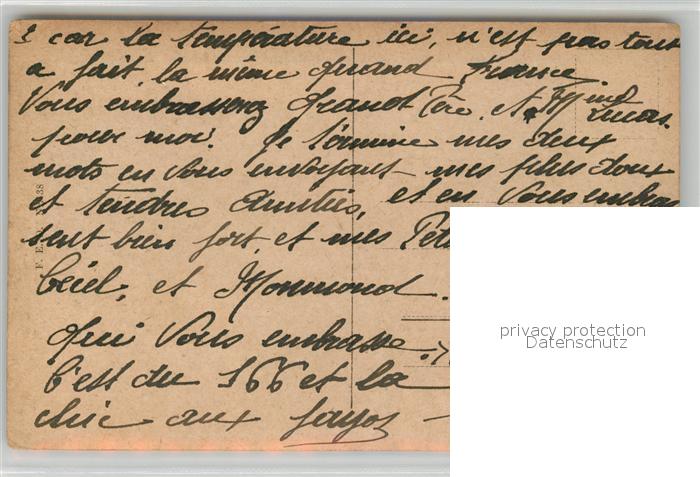 car la température ici, n'est pas tout
a fait la même quand France
Vous embrasserez Grand Père et Mme Lucas
pour moi. Je termine mes deux
mots en vous envoyant mes plus doux
et tendres Amitiés, et en Vous embras
sent bien fort et mes Peti
et
Qui Vous embrasse.
C'est du 166 et la
aux
privacy protection
Datenschutz